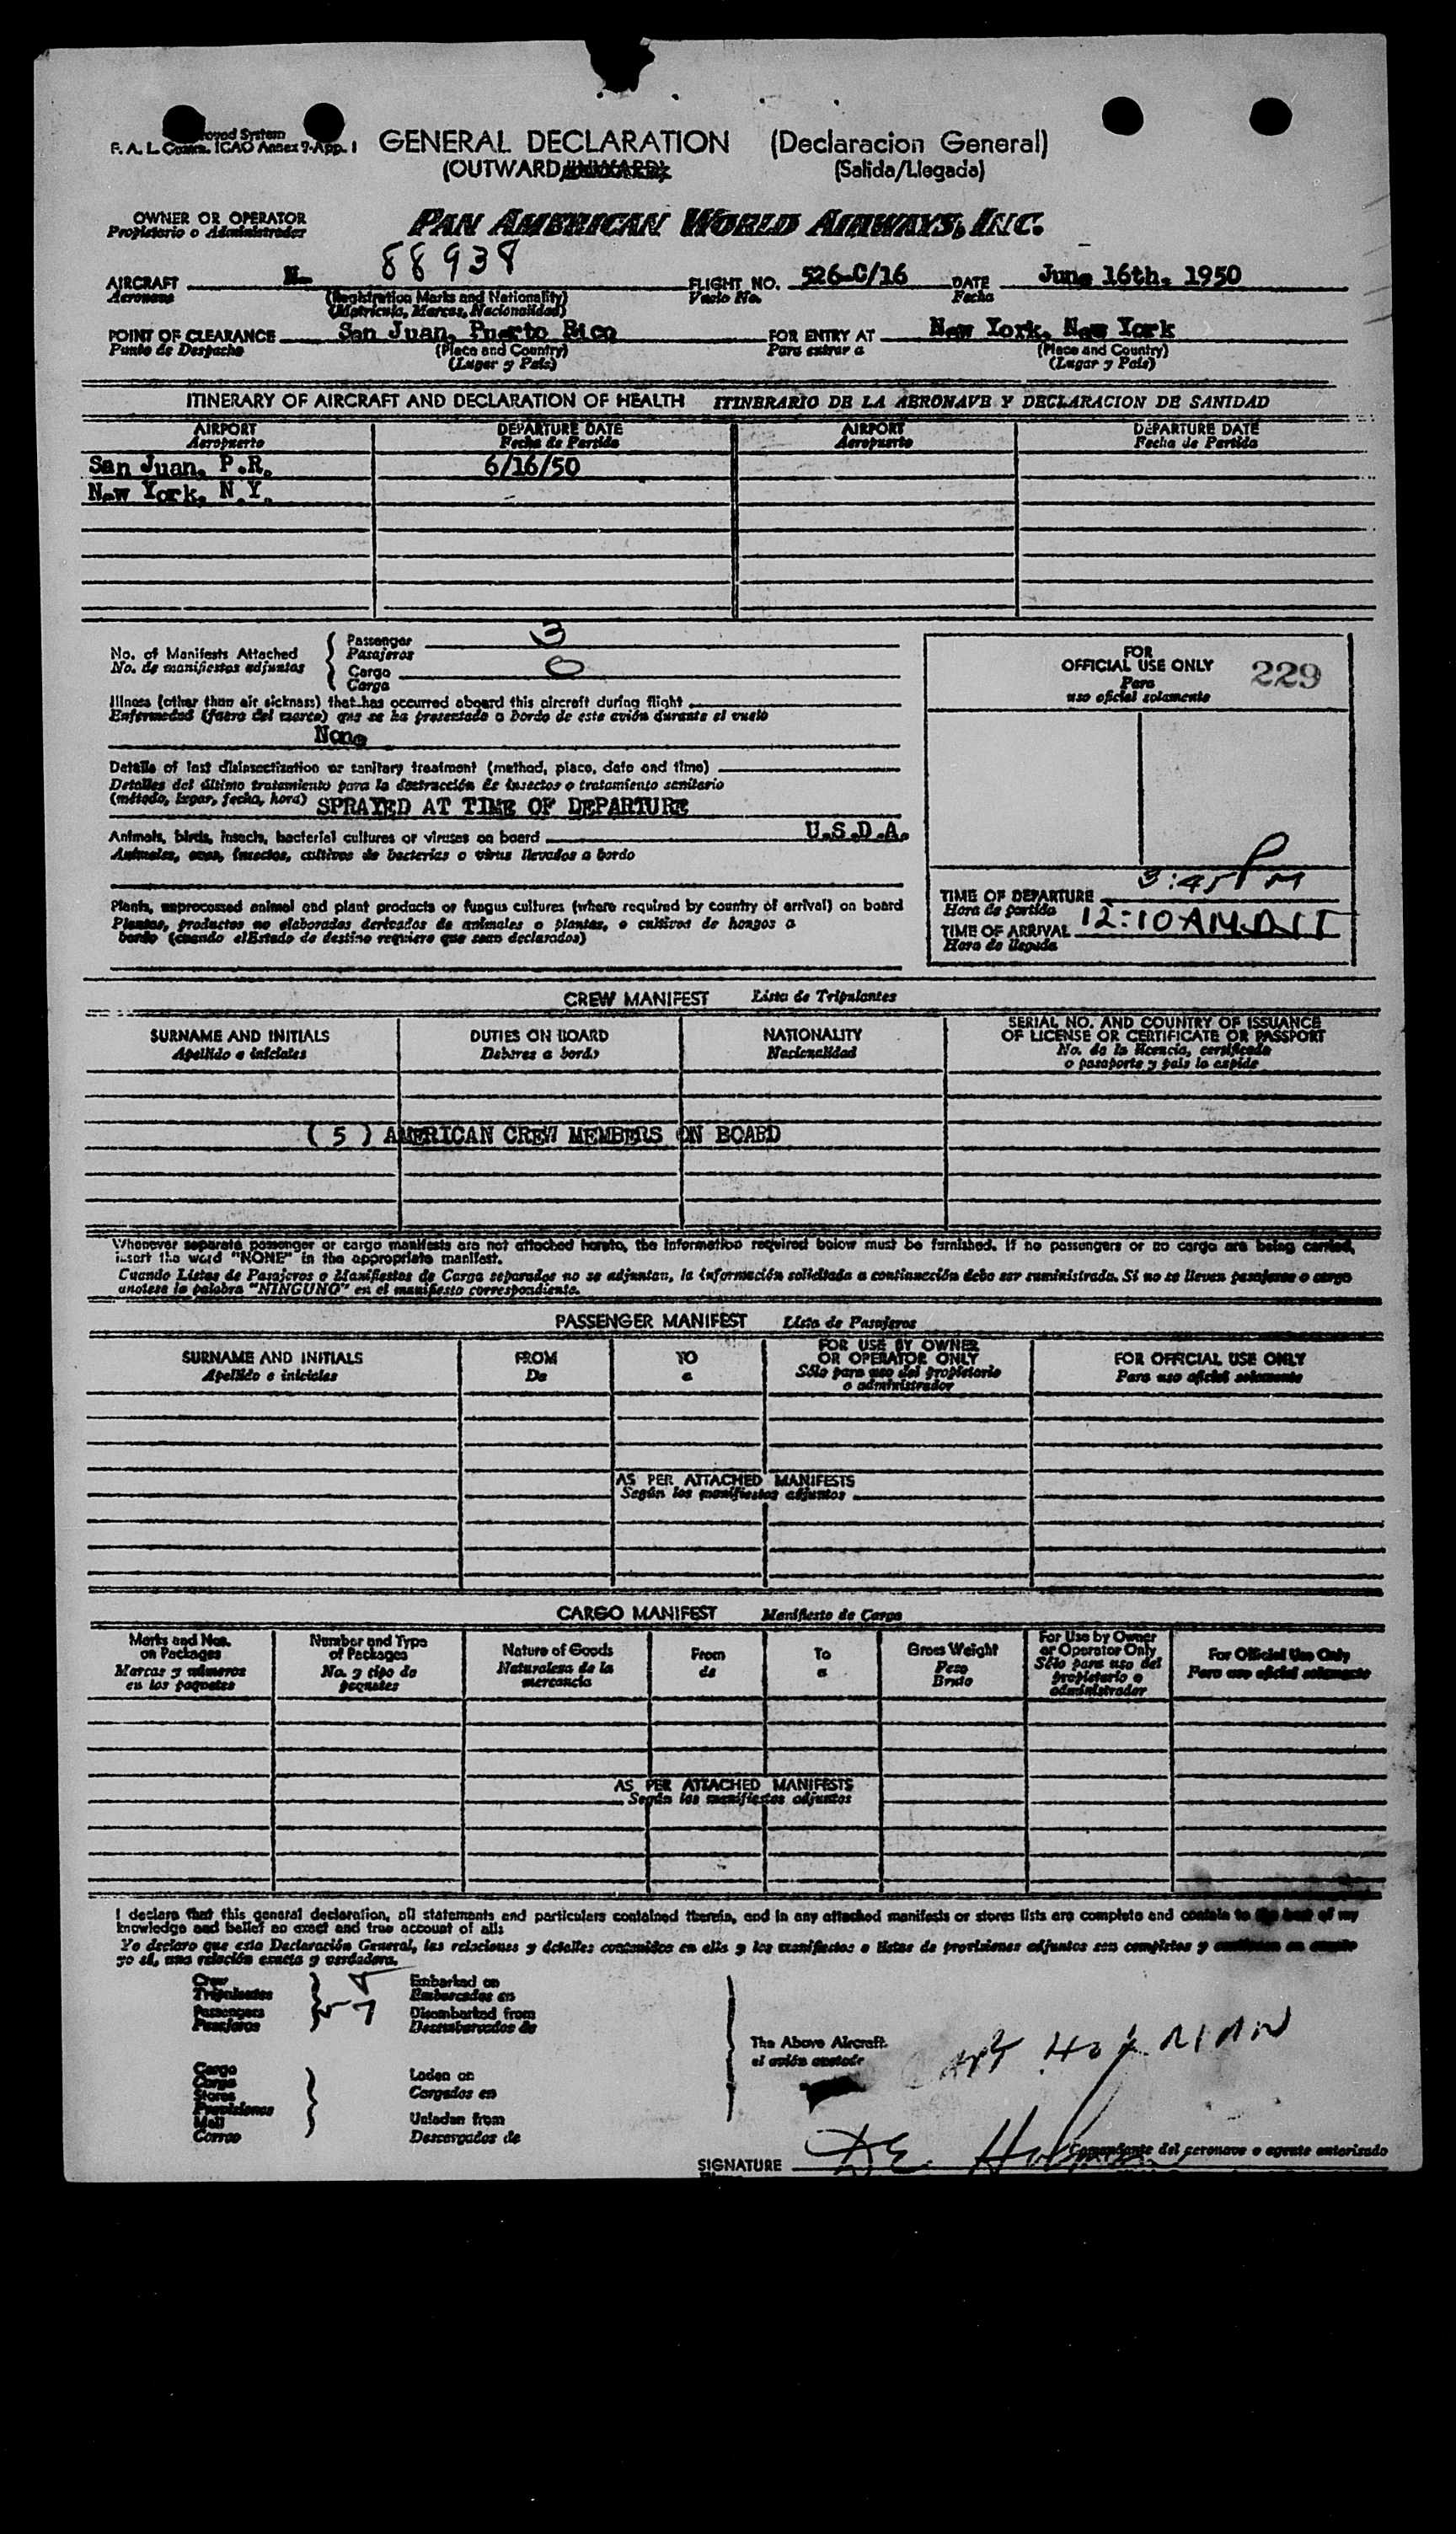 roved System
F. A. L. Comm. ICAO Annex 9-App. 1
GENERAL DECLARATION (Declaracion General)
(OUTWARD/INWARD) (Salida/Llegada)
OWNER OR OPERATOR
Propietario o Administrador
PAN AMERICAN WORLD AIRWAYS, INC.
AIRCRAFT N- 88938 FLIGHT NO. 526-C/16 DATE June 16th, 1950
Aeronave (Registration Marks and Nationality) Vuelo No. Fecha
(Matricula, Marcas, Nacionalidad)
POINT OF CLEARANCE San Juan, Puerto Rico FOR ENTRY AT New York, New York
Punto de Despacho (Place and Country) Para entrar a (Place and Country)
(Lugar y País) (Lugar y País)
ITINERARY OF AIRCRAFT AND DECLARATION OF HEALTH ITINERARIO DE LA AERONAVE Y DECLARACION DE SANIDAD
AIRPORT DEPARTURE DATE AIRPORT DEPARTURE DATE
Aeropuerto Fecha de Partida Aeropuerto Fecha de Partida
San Juan, P.R. 6/16/50
New York, N.Y.
No. of Manifests Attached
No. de manifiestos adjuntos
Passenger 3
Pasajeros
Cargo 0
Carga
FOR
OFFICIAL USE ONLY
Para
uso oficial solamente
229
Illness (other than air sickness) that has occurred aboard this aircraft during flight
Enfermedad (fuera del mareo) que se ha presentado a bordo de este avión durante el vuelo
None
Details of last disinsectization or sanitary treatment (method, place, date and time)
Detalles del último tratamiento para la destrucción de insectos o tratamiento sanitario
(método, lugar, fecha, hora) SPRAYED AT TIME OF DEPARTURE
Animals, birds, insects, bacterial cultures or viruses on board U.S.D.A.
Animales, aves, insectos, cultivos de bacterias o virus llevados a bordo
Plants, unprocessed animal and plant products or fungus cultures (where required by country of arrival) on board
Plantas, productos no elaborados derivados de animales o plantas, o cultivos de hongos a
bordo (cuando el Estado de destino requiere que sean declarados)
TIME OF DEPARTURE 3:45 PM
Hora de partida
TIME OF ARRIVAL 12:10 AM
Hora de llegada
CREW MANIFEST Lista de Tripulantes
SURNAME AND INITIALS DUTIES ON BOARD NATIONALITY SERIAL NO. AND COUNTRY OF ISSUANCE
OF LICENSE OR CERTIFICATE OR PASSPORT
Apellido e iniciales Deberes a bordo Nacionalidad No. de la licencia, certificado
o pasaporte y país lo expide
( 5 ) AMERICAN CREW MEMBERS ON BOARD
Whenever separate passenger or cargo manifests are not attached hereto, the information required below must be furnished. If no passengers or no cargo are being carried,
insert the word "NONE" in the appropriate manifest.
Cuando Listas de Pasajeros o Manifiestos de Carga separados no se adjuntan, la información solicitada a continuación debe ser suministrada. Si no se llevan pasajeros o carga
anotese la palabra "NINGUNO" en el manifiesto correspondiente.
PASSENGER MANIFEST Lista de Pasajeros
SURNAME AND INITIALS FROM TO FOR USE BY OWNER
OR OPERATOR ONLY FOR OFFICIAL USE ONLY
Apellido e iniciales De a Sólo para uso del propietario
o administrador Para uso oficial solamente
AS PER ATTACHED MANIFESTS
Según los manifiestos adjuntos
CARGO MANIFEST Manifiesto de Carga
Marks and Nos.
on Packages
Marcas y números
en los paquetes
Number and Type
of Packages
No. y tipo de
paquetes
Nature of Goods
Naturaleza de la
mercancía
From
de
To
a
Gross Weight
Peso
Bruto
For Use by Owner
or Operator Only
Sólo para uso del
propietario o
administrador
For Official Use Only
Para uso oficial solamente
AS PER ATTACHED MANIFESTS
Según los manifiestos adjuntos
I declare that this general declaration, all statements and particulars contained therein, and in any attached manifests or stores lists are complete and contain to the best of my
knowledge and belief an exact and true account of all:
Yo declaro que esta Declaración General, las relaciones y detalles contenidos en ella y los manifiestos o listas de provisiones adjuntos son completos y
yo sé, una relación exacta y verdadera.
Crew
Tripulantes
Passengers
Pasajeros
Embarked on
Embarcados en
Disembarked from
Desembarcados de
Cargo
Carga
Stores
Provisiones
Mail
Correo
Laden on
Cargados en
Unladen from
Descargados de
The Above Aircraft.
el avión
SIGNATURE
Comandante del aeronave o agente autorizado